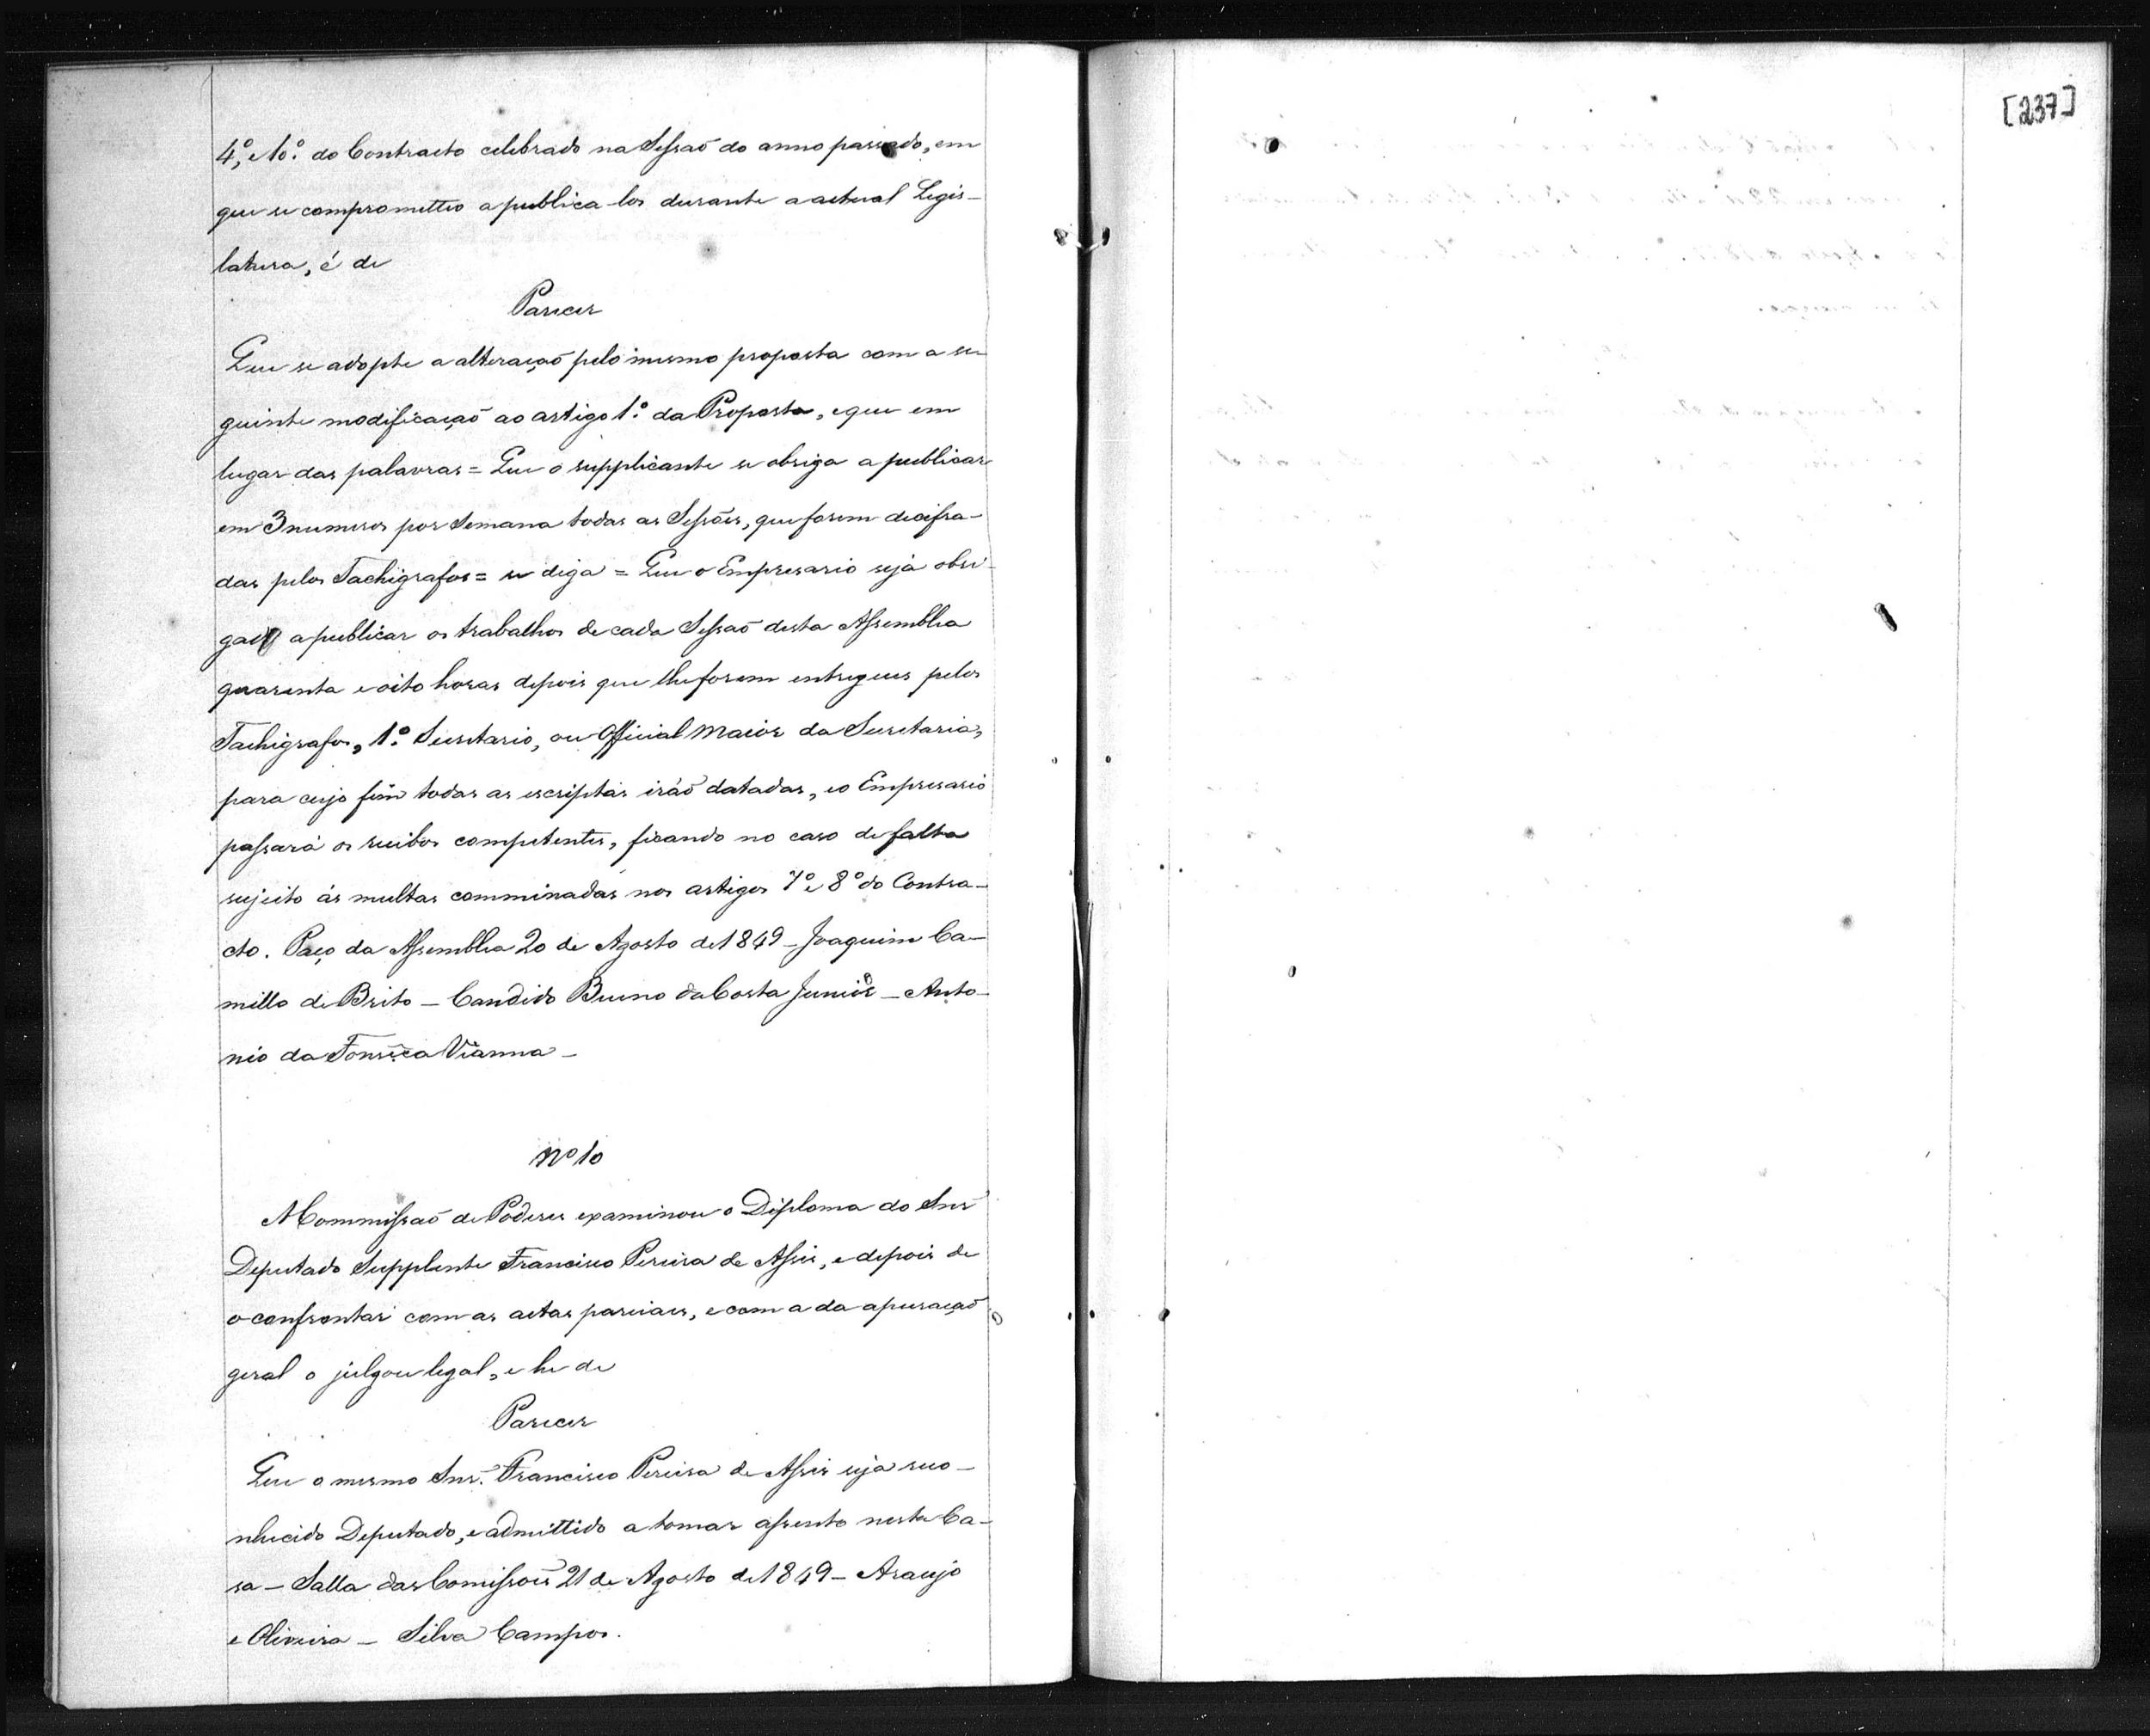 [237]
4º, e 10º. do Contracto celebrado na Sessaõ do anno passado, em
que se comprometteo a publica-los durante a actual Legis-
latura, é de
Parecer
Que se adopte a alteraçaõ pelo mesmo proposta com a se-
guinte modificaçaõ ao artigo 1º. da Proposta, e que em
lugar das palavras = Que o supplicante se obriga a publicar
em 3 numeros por Semana todas as Sessões, que forem decifra-
das pelos Tachigrafos = se diga = Que o Empresario seja obri-
gado a publicar os trabalhos de cada Sessaõ desta Assemblea
quarenta e oito horas depois que lhe forem entregues pelos
Tachigrafos, 1º. Secretario, ou Official Maior da Secretaria,
para cujo fim todas as escriptas iráõ datadas, e o Empresario
passará os recibos competentes, ficando no caso de falta
sujeito ás multas comminadas nos artigos 7º e 8º do Contra-
cto. Paço da Assemblea 20 de Agosto de 1849 - Joaquim Ca-
millo de Brito - Candido Bueno da Costa Junior - Anto-
nio da Fonsêca Vianna -
Nº 10
A Commissaõ de Poderes examinou o Diploma do Snr
Deputado Supplente Francisco Pereira de Assis, e depois de
o confrontar com as actas parciaes, e com a da apuraçaõ
geral o julgou legal, e he de
Parecer
Que o mesmo Snr. Francisco Pereira de Assis seja reco-
nhecido Deputado, e admittido a tomar assento nesta Ca-
sa - Salla das Comissões 21 de Agosto de 1849 - Araujo
e Oliveira - Silva Campos.